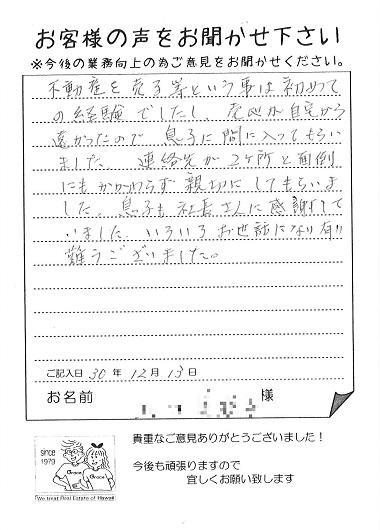 お客様の声をお聞かせ下さい
※今後の業務向上の為ご意見をお聞かせください。
不動産を売る等という事は初めて
の経験でしたし、
が自宅から
遠かったので 息子に間に入ってもらい
ました 連絡先が2ヶ所と面倒
にもかかわらず親切にしてもらいま
した。息子も社長さんに感謝して
いました いろいろお世話になり有り
難うございました。
ご記入日 30 年 12 月 13 日
お名前
様
since
1979
Grace
Grace
We treat Real Estate of Hawaii
貴重なご意見ありがとうございました！
今後も頑張りますので
宜しくお願い致します